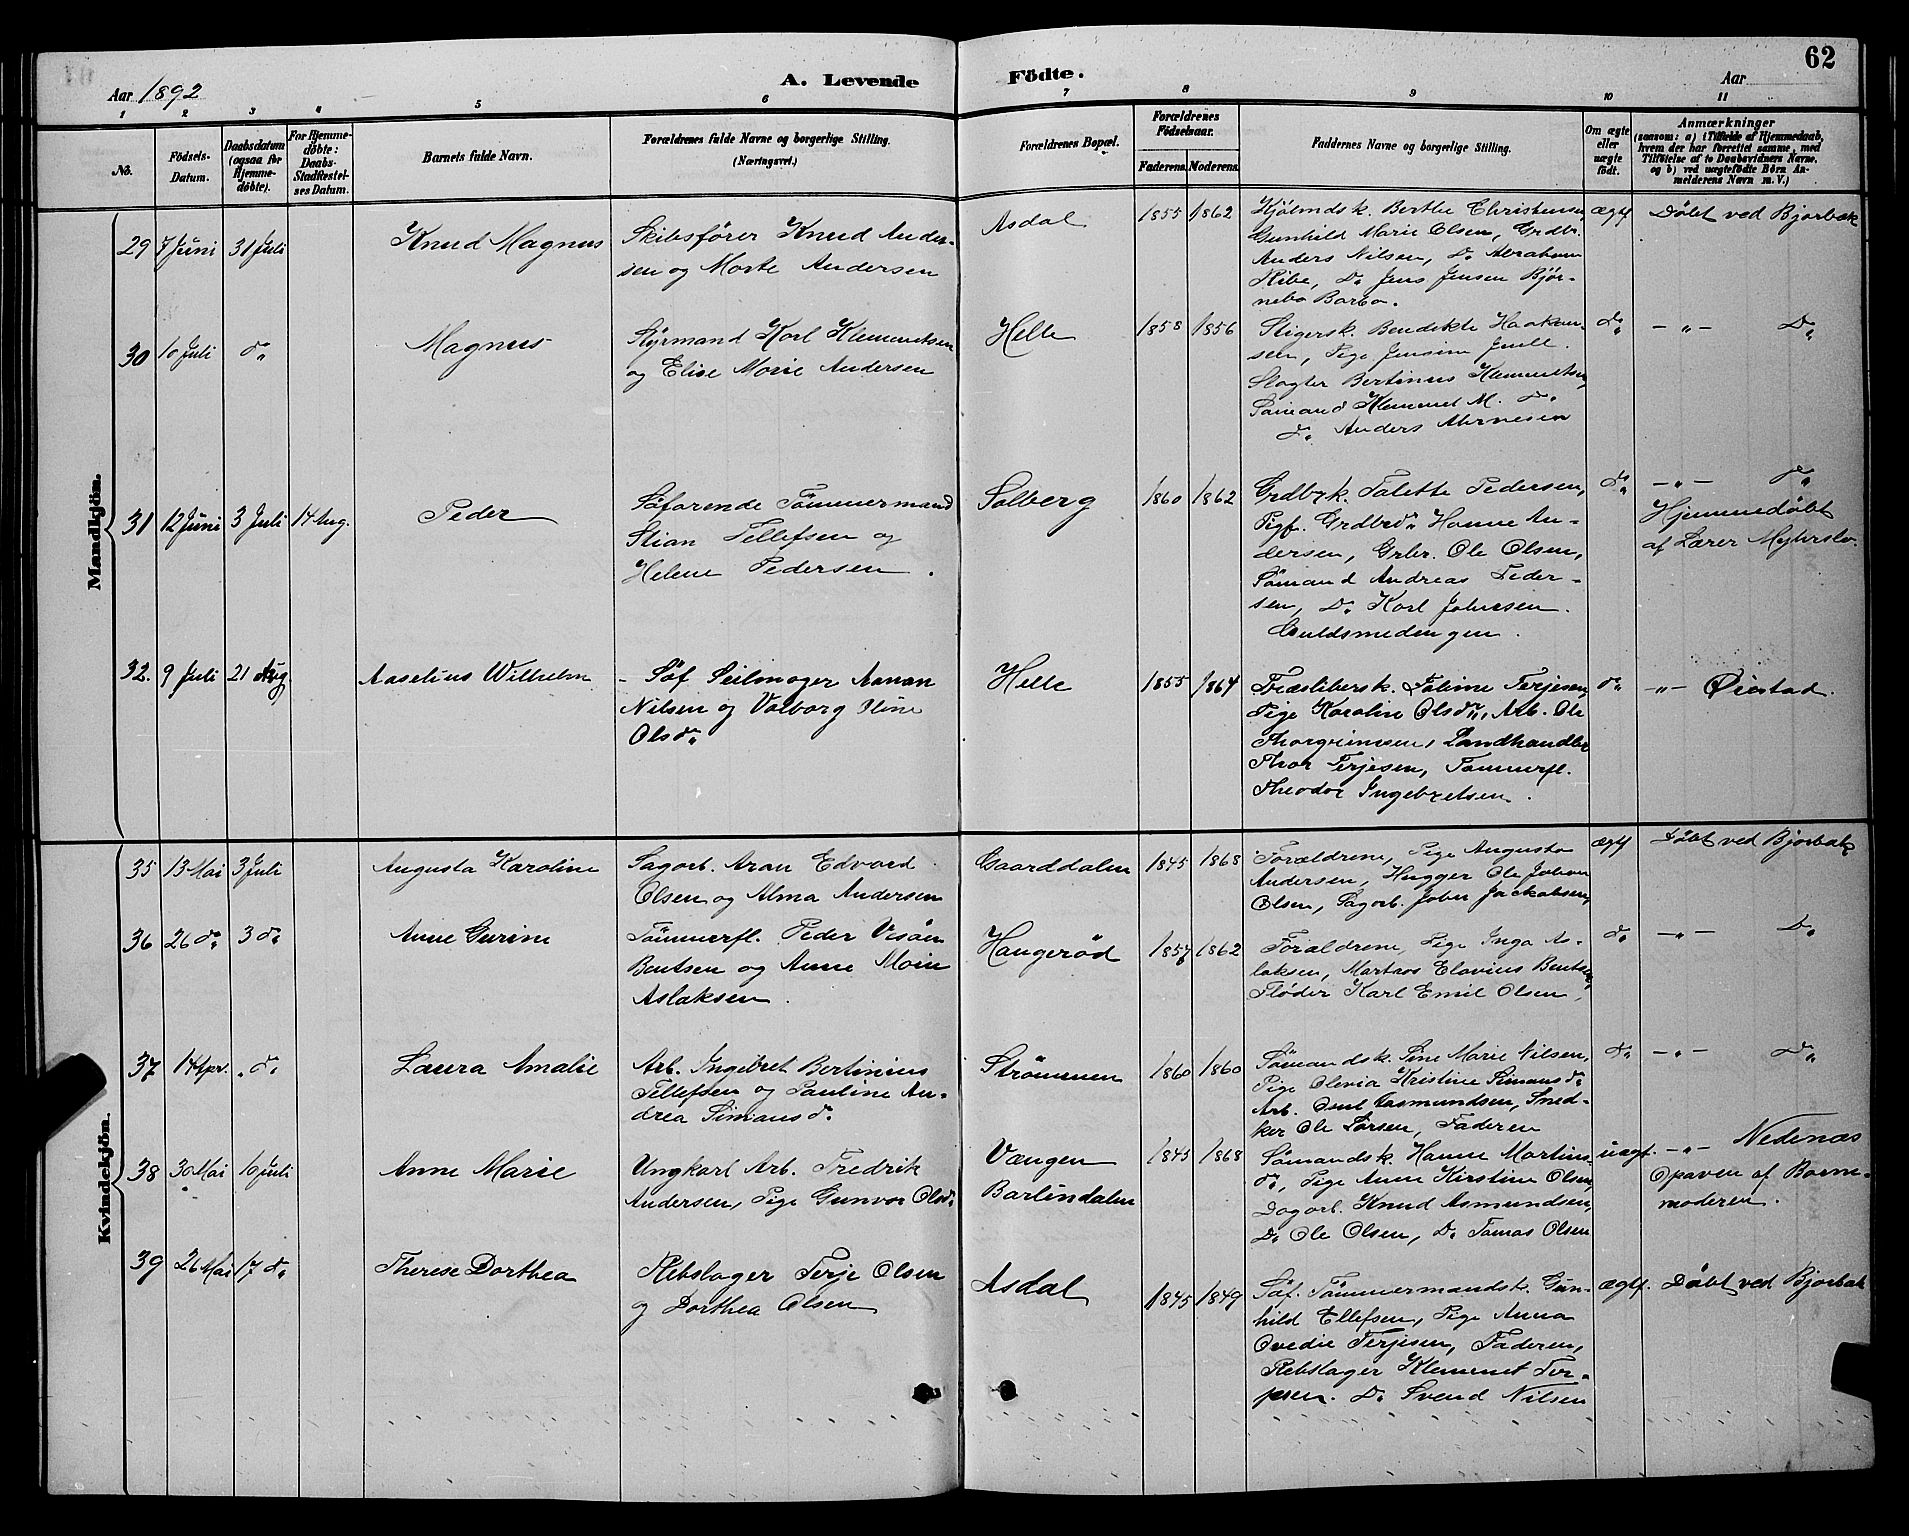 62
Aar 1892
A. Levende Födte.
Aar
1 2 3 4 5 6 7 8 9 10 11
No.
Födsels-Datum.
Daabsdatum (ogsaa for Hjemmedöbte).
For Hjemmedöbte: Daabs-Stadfæstelses Datum.
Barnets fulde Navn.
Forældrenes fulde Navne og borgerlige Stilling.
(Næringsvei.)
Forældrenes Bopæl.
Forældrenes Födselsaar.
Faderens. Moderens.
Faddernes Navne og borgerlige Stilling.
Om ægte eller uægte født.
Anmærkninger
(saasom: a) i Tilfælde af Hjemmedaab,
hvem der har forrettet samme, med
Tilföielse af to Daabsvidners Navne,
og b) ved uægtefödte Börn An-
melderens Navn m. V.)
Mandkjön.
29 7 Juni 31 Juli Knud Magnus
Skibsfører Knud Ander-
sen og Marte Andersen
Asdal 1855 1862
Kjölmdsk. Berthe Christensen
Gunhild Marie Olsen, Grdbr.
Anders Nilsen, Do Abraham
Ribe, Do Jens Jensen Bjør-
nebo Barbo.
ægtf Döbt ved Bjorbæk
30 10 Juli do Magnus
Styrmand Karl Klemmetsen
og Elise Marie Andersen
Helle 1858 1856
Stigersk. Bendikte Haakon-
sen, Pige Jensine Juell.
Slagter Bertinius Klemmetsen,
Sømand Klemmet M. do
do Anders
do -"- Do
31 12 Juni 3 Juli 14 Aug. Peder
Søfarende Tømmermand
Stian Tellefsen og
Helene Pedersen.
Solberg 1860 1862
Grdbrk. Talette Pedersen,
Pige Grdbrdo Hanne An-
dersen, Grbr. Ole Olsen,
Sømand Andreas Peder-
sen, Do Karl Johnsen.
Guldsmedengen.
do -"- do
Hjemmedøbt
af Lærer
32. 9 Juli 21 Aug Aaselius Wilhelm
- Søf Seilmager Aanan
Nilsen og Valborg Oline
Olsdo
Helle 1855 1864
Træslibersk. Taline Terjesen,
Pige Karoline Olsdo, Arb. Ole
Thorgrimsen, Landhandler
Thor Terjesen, Tømmerfl.
Theodor Ingebretsen.
do -"- Øiestad.
Kvindekjön.
35 13 Mai 3 Juli Augusta Karoline
Sagarb. Aran Edvard
Olsen og Alma Andersen
Gaarddalen 1845 1868
Forældrene, Pige Augusta
Andersen, Hugger Ole Johan
Olsen, Sagarb. John Jackobsen,
ægtf Döbt ved Bjorbæk
36 26 do 3 do Anne Gurine
Tømmerfl. Peder
Bentsen og Anne Marie
Aslaksen.
Haugerød 1857 1862
Forældrene, Pige Inga As-
laksen, Matros Elavius Bentsen
Fløder Karl Emil Olsen,
do -"- Do
37 14 Apr. do Laura Amalie
Arb. Ingebret Bertinius
Tellefsen og Pauline An-
drea Simonsdo
Strømmen 1860 1860
Sömandsk. Sine Marie Nilsen,
Pige Olevia Kristine Simonsdo
Arb. Omt Aasmundsen, Sned-
ker Ole Larsen, Faderen
do -"- do
38 30 Mai 10 Juli Anne Marie
Ungkarl Arb. Fredrik
Andersen, Pige Gunvor Olsdo
Vængen
Barlindalen
1845 1868
Sömandsk. Hanne Martins-
do, Pige Anne Kirstine Olsen,
Dagarb. Knud Asmundsen,
Do Ole Olsen, Do Tomas Olsen
uægt. -"- Nedenæs
Opgaven af Barne-
moderen.
39 26 Mai 17 do Therese Dorthea
Rebslager Terje Olsen
og Dorthea Olsen
Asdal 1845 1849
Søf. Tømmermandsk. Gun-
hild Ellefsen, Pige Anna
Ovedie Terjesen, Faderen,
Rebslager Klemmet Ter-
jesen. Do Svend Nilsen
ægtf. Döbt ved Bjorbæk